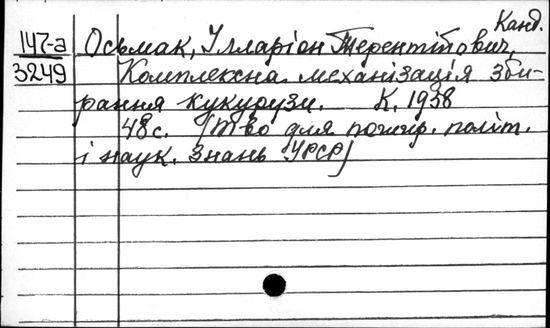 Канд.
147-а Осьмак, Ілларіон Терентійович,
3249 Комплексна механізація зби-
рання кукурузи. К. 1958
48 с. (Т-во для пошир. політ.
і наук. знань УРСР)